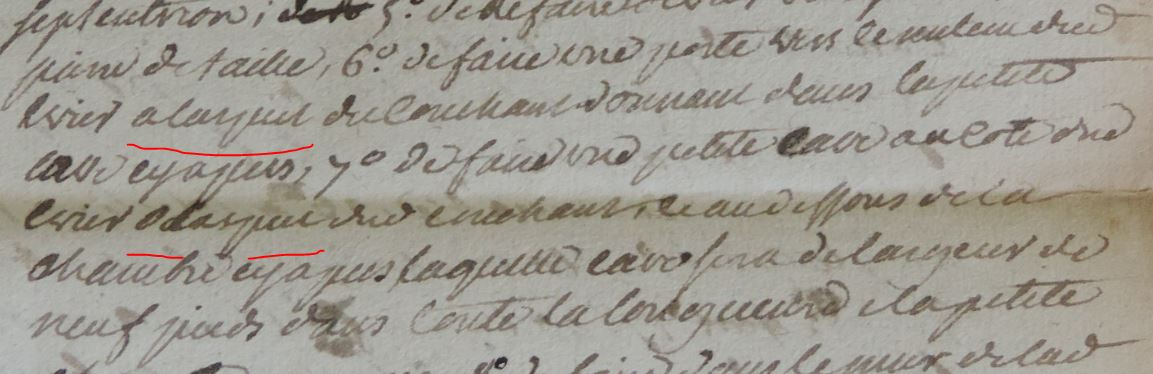 septentrion ; 5.° de
pierre de taille, 6.° de faire une porte vers le
evier a laspect du Couchant donnant dans la petite
cave cy apres, 7° de faire une petite Cave au Coté dud
evier a laspect dud couchant, et au dessous de la
chambre cy apres laquelle cave sera de largeur de
neuf pieds dans toute la longueur de la petite
dans le mur de lad